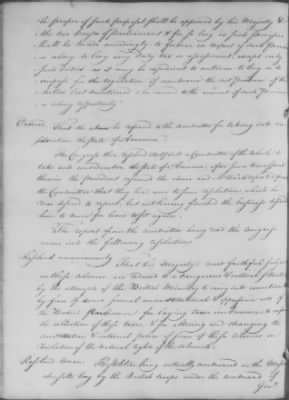 the proposer of such proposal shall be approved by his Majesty &
the two Houses of Parliament & for so long as such Provision
shall be made accordingly to forbear in respect of such Province
or colony to lay any Duty tax or assessment except only
such Duties as it may be expedient to continue to levy or to
impose for the regulation of commerce the net produce of the
duties last mentioned to be carried to the account of such Province
or colony respectively
Ordered That the above be referred to the committee for taking into con
sideration the State of America
The Congress then resolved itself into a Committee of the whole to
take into consideration the State of America after some time spent
therein the president resumed the chair and Mr Ward reported from
the Committee that they had come to some resolutions which he
was desired to report, but not having finished the business desired
him to move for leave to sit again
The report from the committee being read the congress
came into the following resolutions
Resolved unanimously That his Majesty's most faithful subjects
in these colonies are reduced to a dangerous & critical situation
by the attempts of the British Ministry to carry into execution
by force of arms several unconstitutional & oppressive acts of
the British Parliament for laying taxes in America to enforce
the collection of these taxes & for altering and changing the
constitution & internal police of some of these colonies in
violation of the natural & civil rights of the colonists
Resolved unan Hostilities being actually commenced in the Massa
chusetts bay by the British troops under the command of
Genl